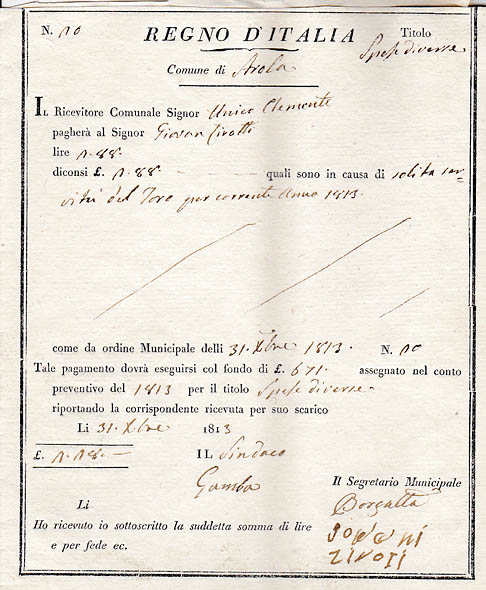 N. 10 REGNO D'ITALIA Titolo
Spese diverse
Comune di Arola
IL Ricevitore Comunale Signor Unico Clemente
pagherà al Signor Giovan Zirotti
lire 1.88.
diconsi £. 1.88 quali sono in causa di solita ser=
vitù del Toro per corrente Anno 1813.
come da ordine Municipale delli 31. Xbre 1813. N. 10
Tale pagamento dovrà eseguirsi col fondo di £. 671. assegnato nel conto
preventivo del 1813 per il titolo Spese diverse.
riportando la corrispondente ricevuta per suo scarico
Li 31. Xbre 1813
£. IL Sindaco
Gamba
Il Segretario Municipale
Li
Ho ricevuto io sottoscritto la suddetta somma di lire
e per fede ec.